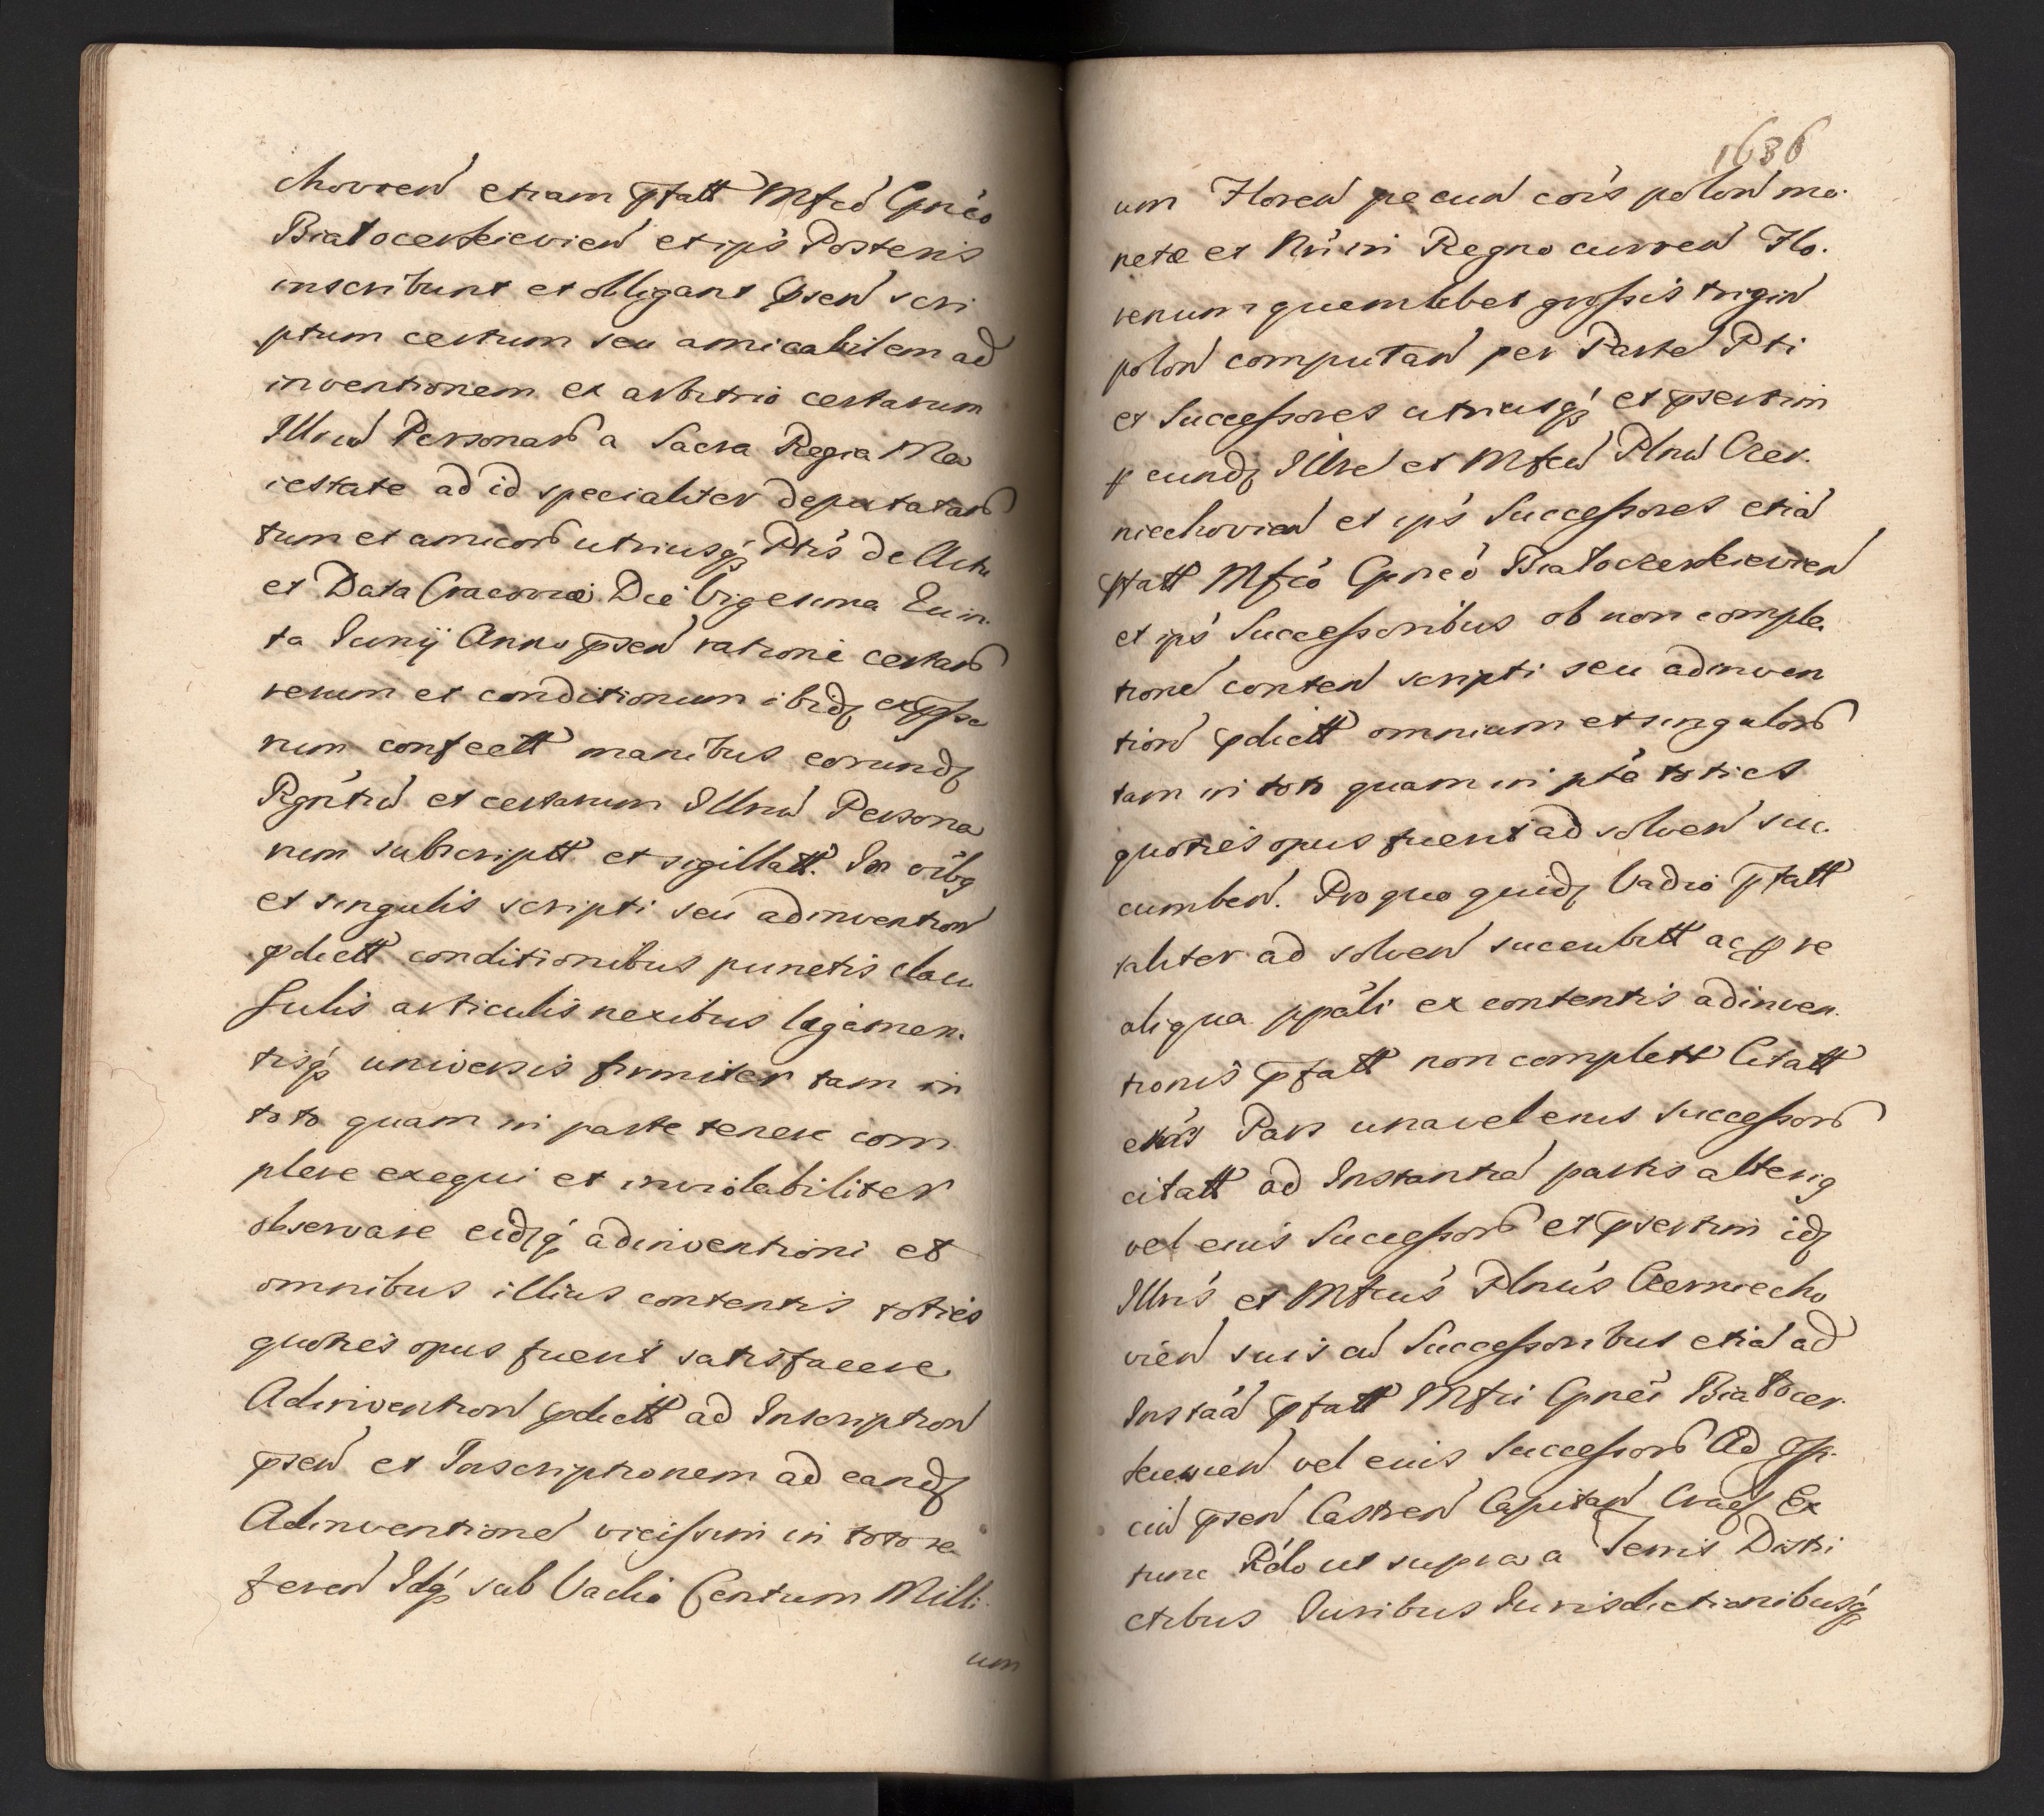 chovien etiam pfatt Mfco Gnéo
Białocerkievien et ips Posteris
inscribunt et obligant psen scri
ptum certum seu amicabilem ad
inventionem ex arbitrio certarum
Illriu Personaru a Sacra Regia Ma
iestate ad id specialiter deputataru
tum et amicoru utriusq Ptis de Actu
et Data Cracoviæ Die Vigesima Quin
ta Junij Anno psen ratione certaru
rerum et conditionum ibidq expssa
rum confectt manibus eorundq
Rgntiu et certarum Illriu Persona
rum subscriptt et sigillatt. In oibq
et singulis scripti seu adinvention
pdictt conditionibus punctis clau
sulis articulis nexibus ligamen.
tisq universis firmiter tam in
toto quam in parte tenere com
plere exequi et inviolabiliter
observare eidq adinventioni et
omnibus illius contentis toties
quoties opus fuerit satisfacere
Adinvention pdictt ad Inscription
psen et Inscriptionem ad eandq
Adinventione vicissim in toto re
feren Idq sub Vadio Centum Milli
um
1636
um Floren pecun cois polon mo.
netæ et Nri in Regno curren Flo.
renum quemlibet grossis trigin
polon computan per Parte Pti
et Successores utriusq et psertim
p eundq Illre et Mfcu Dlnu Czer.
niechovien et ips Successores etia
pfatt Mfco Gnéo Białocerkievien
et ips Successoribus ob non comple
tione conten scripti seu adinven
tion pdictt omnium et singuloru
tam in toto quam in pte toties
quoties opus fuerit ad solven suc.
cumben. Pro quo quidq Vadio pfatt
taliter ad solven succubitt ac p re
aliqua ppali ex contentis adinven.
tionis pfatt non complett Citatt
exns Pars una vel eius successoru
citatt ad Instantia partis alteriq
vel eius Successoru et psertim idq
Illris et Mfcus Dlnus Czerniecho
vien suis cu Successoribus etia ad
Instaa pfatt Mfci Gnei Białocer.
kievien vel eius Successoru Ad Offi.
ciu psen Castren Capitan Cracq Ex
tunc Rdlo ut supra a Terris Distri
ctibus Juribus Jurisdictionibusq